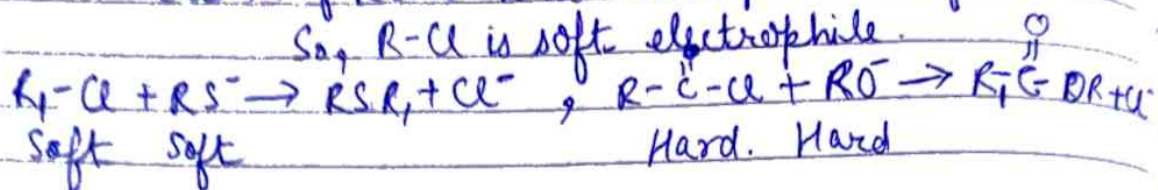 So, R-Cl is soft electrophile.
O
||
R₁-Cl + RS⁻ → RSR₁ + Cl⁻ , R-C-Cl + RO⁻ → R₁-C-OR + Cl⁻
Soft Soft Hard. Hard